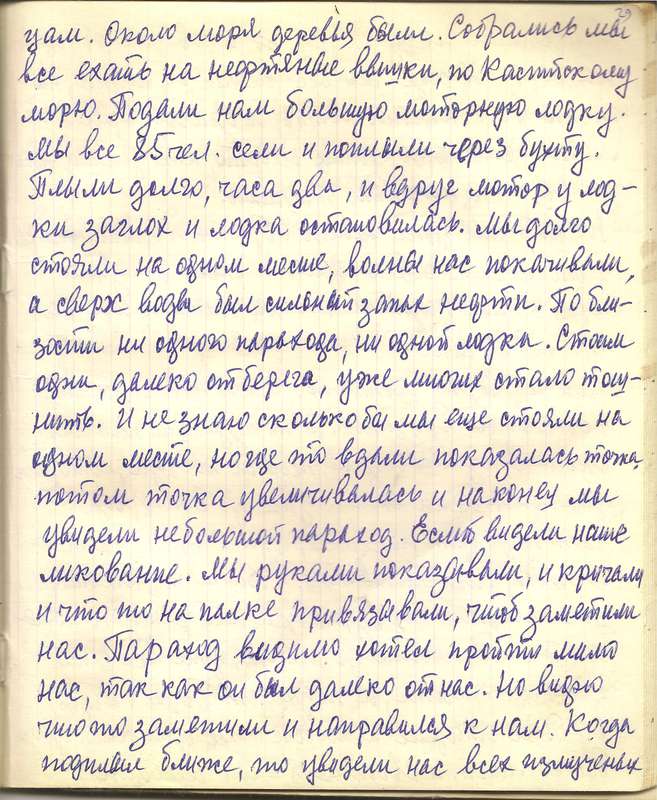 29
цам. Около моря деревья были. Собрались мы
все ехать на нефтяные вышки, по Каспискому
морю. Подали нам большую моторную лодку.
Мы все 85 чел. сели и поплыли через бухту.
Плыли долго, часа два, и вдруг мотор у лод-
ки заглох и лодка остановилась. Мы долго
стояли на одном месте, волны нас покачивали,
а сверх воды был сильный запах нефти. По бли-
зости ни одного парахода, ни одной лодки. Стоим
одни, далеко от берега, уже многих стало тош-
нить. И не знаю сколько бы мы еще стояли на
одном месте, но где то вдали показалась точка,
потом точка увеличивалась и наконец мы
увидели небольшой параход. Еслиб видели наше
ликование. Мы руками показывали, и кричали
и что то на палке привязывали, чтоб заметили
нас. Параход видимо хотел пройти мимо
нас, так как он был далеко от нас. Но видно
что то заметили и направился к нам. Когда
подплыл ближе, то увидели нас всех измученых